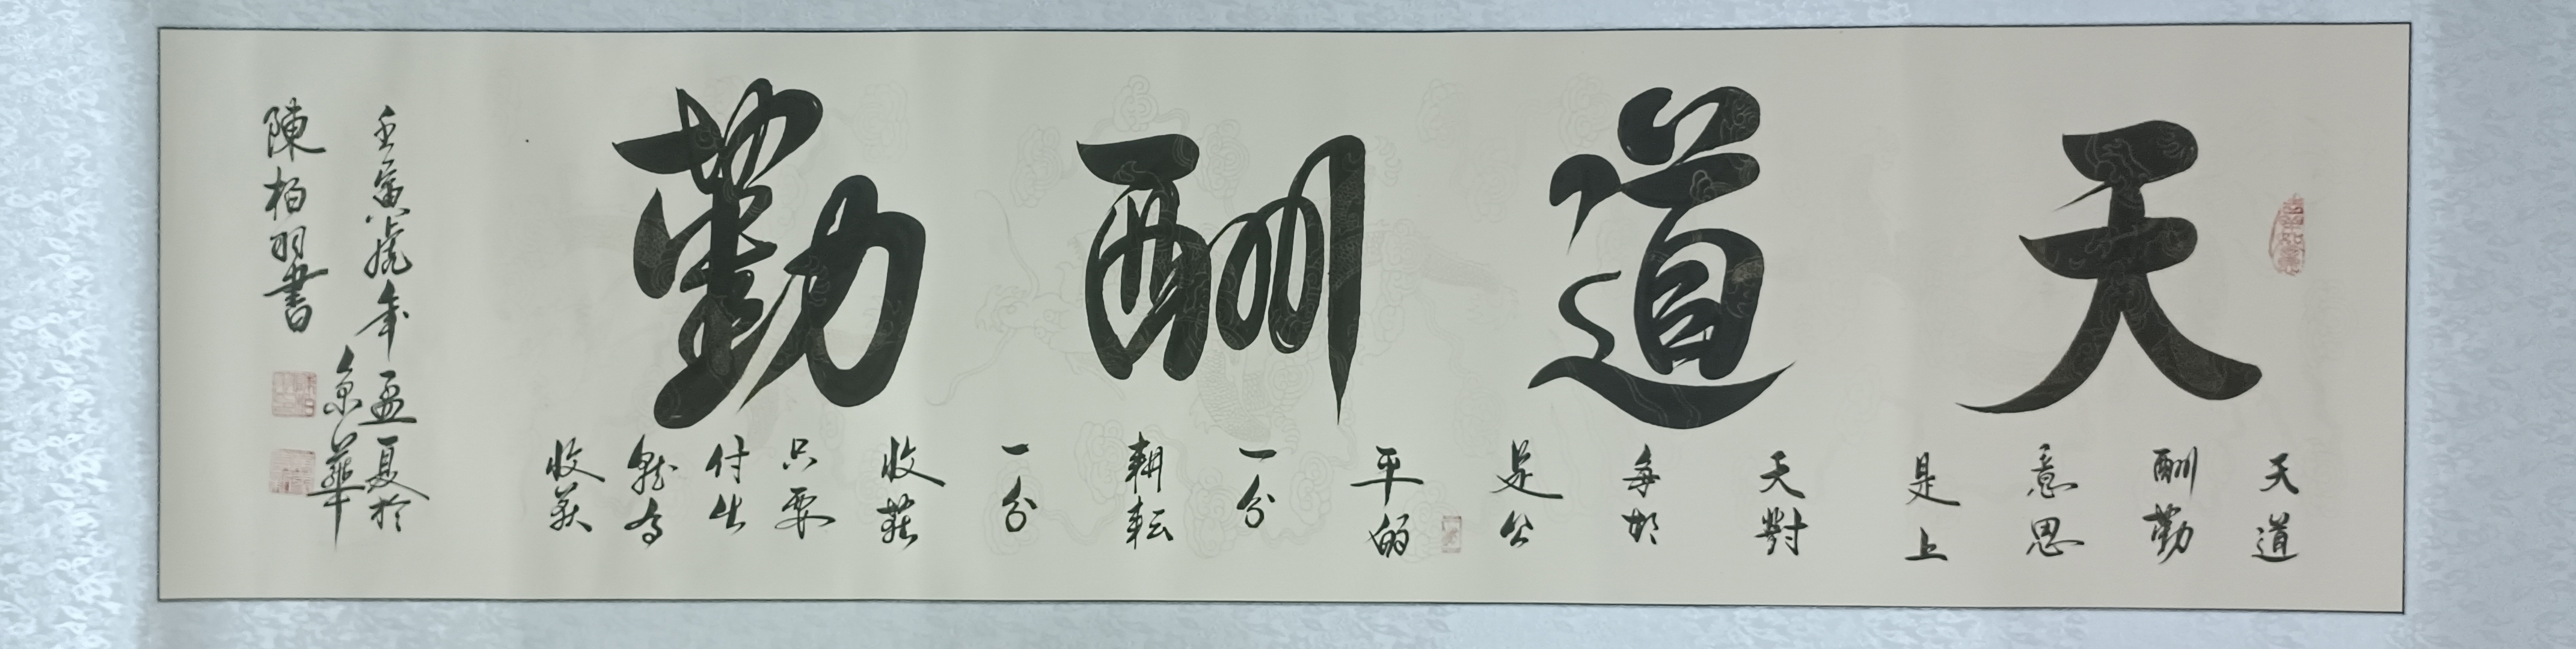 天道酬勤
天道
酬勤
意思
是上
天對
每個
是公
平的
一分
耕耘
一分
收获
只要
付出
就有
收获
壬寅虎年孟夏於
京華
陳柏羽書